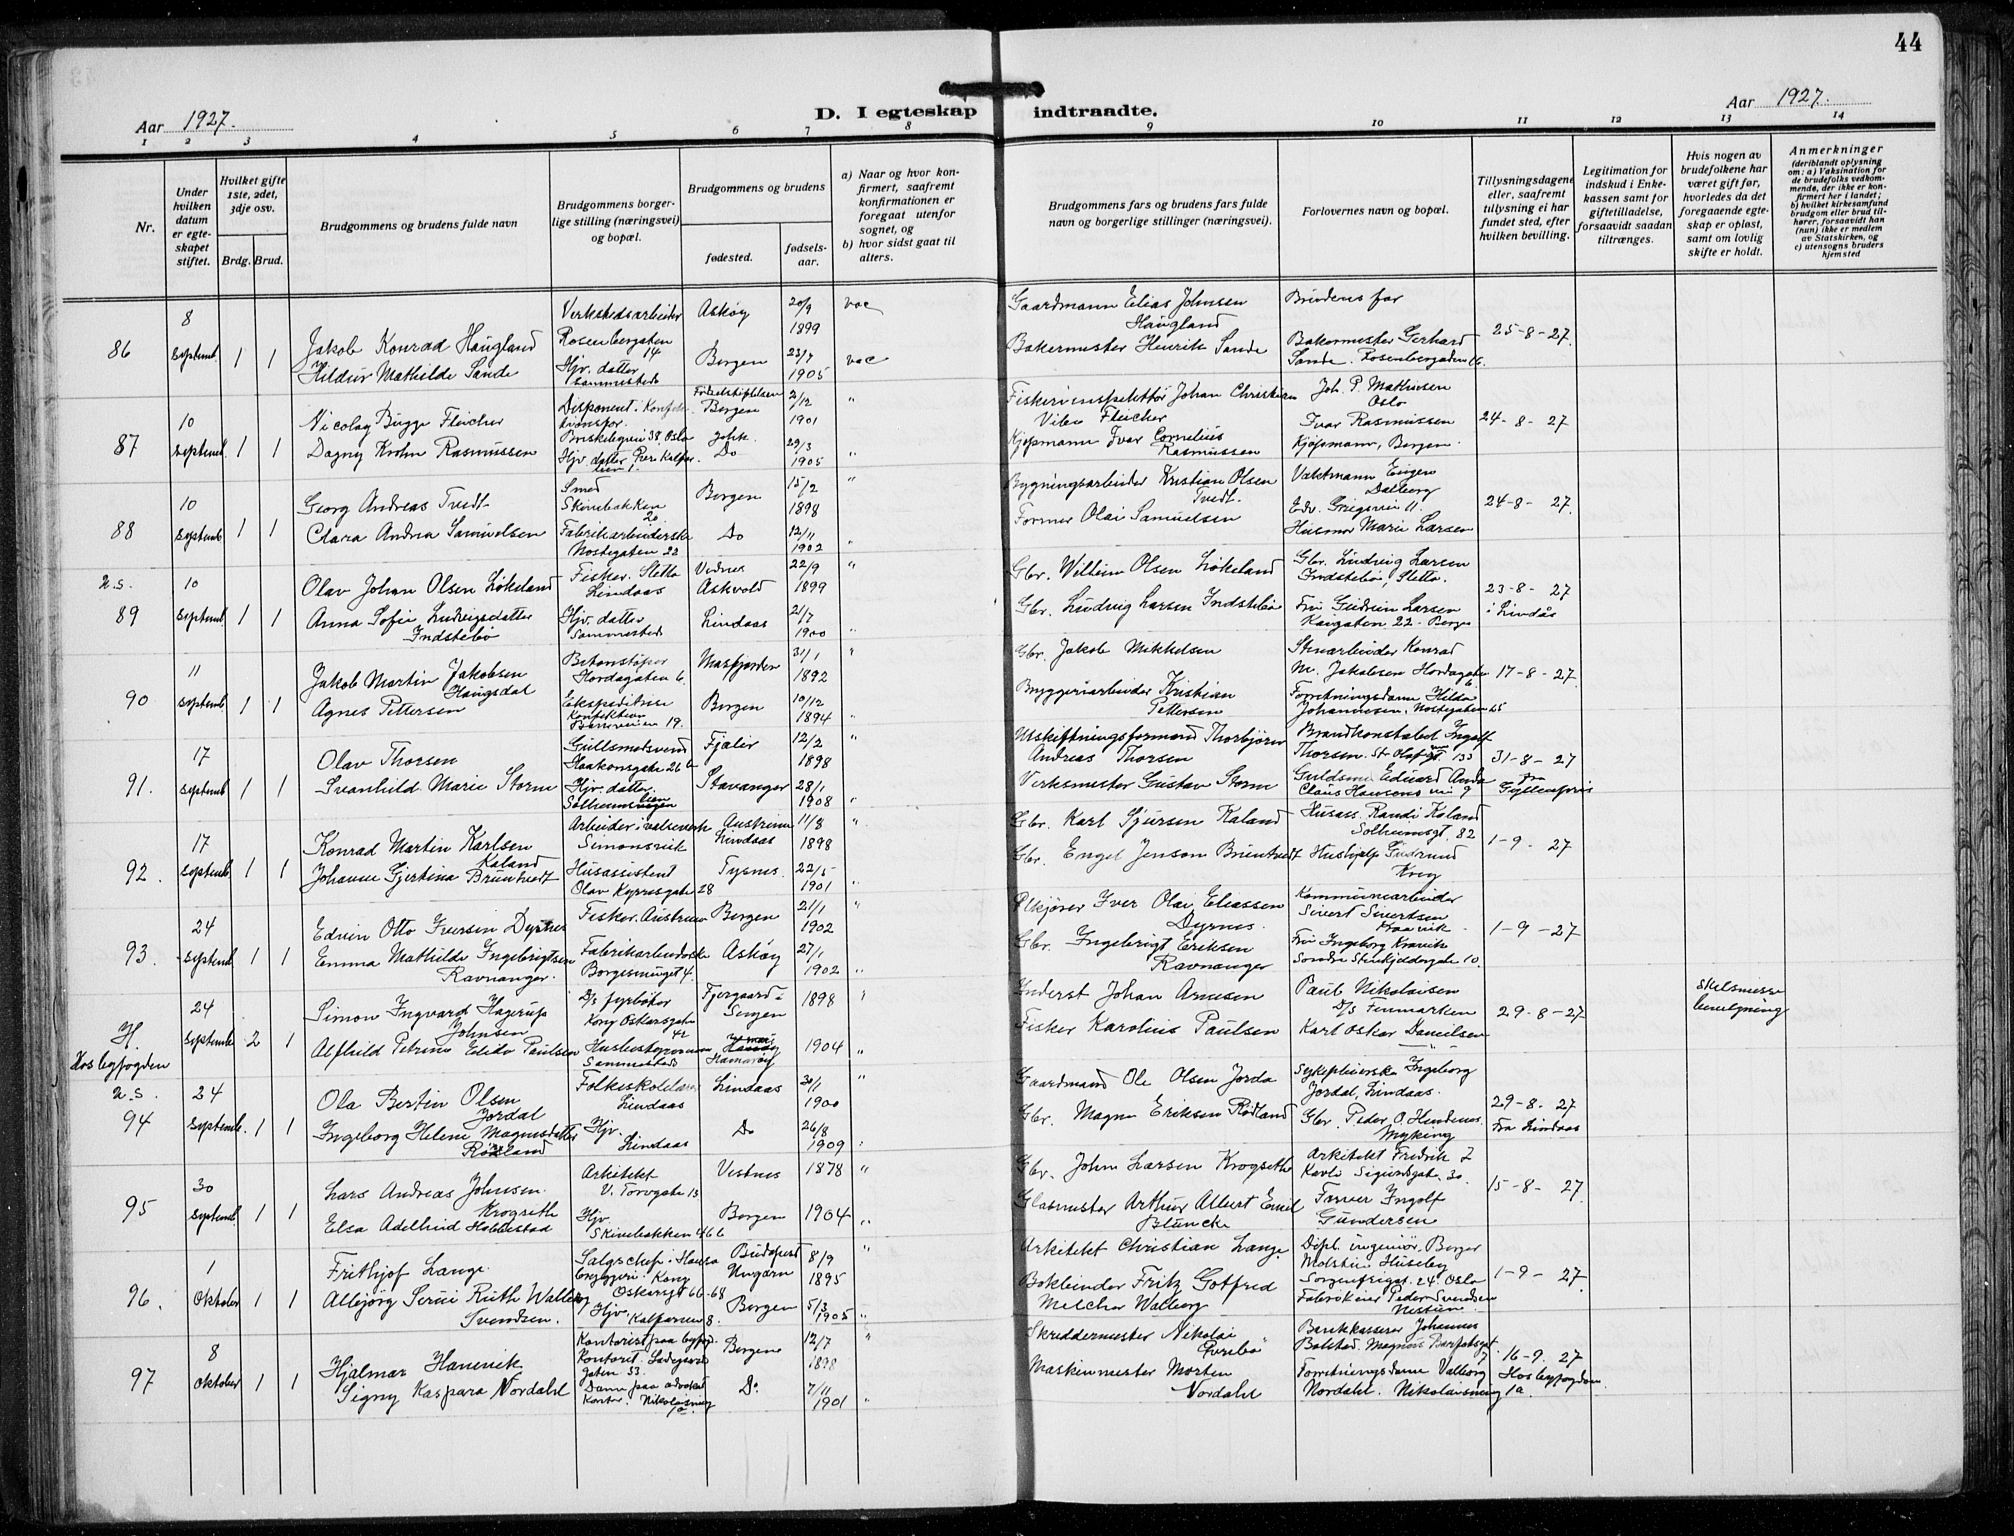 44
Aar 1927.
D. I egteskap indtraadte.
Aar 1927.
1 2 3 4 5 6 7 8 9 10 11 12 13 14
Nr.
Under hvilken datum er egteskapet stiftet.
Hvilket gifte 1ste, 2det, 3dje osv.
Brdg. Brud.
Brudgommens og brudens fulde navn
Brudgommens borgerlige stilling (næringsvei) og bopæl.
Brudgommens og brudens
fødested.
fødselsaar.
a) Naar og hvor konfirmert, saafremt konfirmationen er foregaat utenfor sognet, og
b) hvor sidst gaat til alters.
Brudgommens fars og brudens fars fulde navn og borgerlige stillinger (næringsvei).
Forlovernes navn og bopæl.
Tillysningsdagene eller, saafremt tillysning ei har fundet sted, efter hvilken bevilling.
Legitimation for indskud i Enkekassen samt for giftetilladelse, forsaavidt saadan tiltrænges.
Hvis nogen av brudefolkene har været gift før, hvorledes da det foregaaende egteskap er opløst, samt om lovlig skifte er holdt.
Anmerkninger
(deriblandt oplysning om: a) Vaksination for de brudefolks vedkommende, der ikke er konfirmert her i landet; b) hvilket kirkesamfund brudgom eller brud tilhører, forsaavidt han (hun) ikke er medlem av Statskirken, og c) utensogns bruders hjemsted
86 8 septemb. 1 1
Jakob Konrad Haugland
Hildur Mathilde Sande
Verkstedsarbeider
Rosenbergaten 14
Hjv. datter sammesteds
Askøy 20/9 1899 vac
Bergen 23/7 1905 vac
Gaardmann Elias Johnsen Haugland
Bakermester Henrik Sande
Brudens far
Bakermester Gerhard Sande. Rosenbergaten 16.
25-8-27.
87 10 septemb. 1 1
Nicolay Bugge Fleicher
Dagny Krohn Rasmussen
Disponent.
Briskebyvei 38. Oslo
Hjv. datter
Bergen 2/12 1901 "
Do 29/3 1905 "
Fiskeriinspektør Johan Christian Vibe Fleicher
Kjøpmann Ivar Cornelius Rasmussen
Joh. P. Mathisen Oslo
Ivar Rasmussen
Kjøpmann, Bergen.
24-8-27
88 10 septemb 1 1
Georg Andreas Tvedt
Clara Andrea Samuelsen
Smed
Skivebakken 20
Fabrikarbeiderske
Nostegaten 22
Bergen 15/2 1898 "
Do 12/11 1902 "
Bygningsarbeider Kristian Olsen Tvedt.
Former Olai Samuelsen
Vaktmann Eugen Dalberg
Edv. Griegsvei 11.
Husmor Marie Larsen
24-8-27.
u.s.
89 10 septemb 1 1
Olav Johan Olsen Løkeland
Anna Sofie Ludvigsdatter Indstebø
Fisker. Sletta Lindaas
Hjv. datter sammesteds
Askvold 22/9 1899 "
Lindaas 21/7 1900 "
Gbr. Wilhelm Olsen Løkeland
Gbr. Ludvig Larsen Indstebø
Gbr. Ludvig Larsen
Indstebø, Sletta.
Fru Gudrun Larsen
Kaigaten 22 - Bergen
23-8-27
i Lindås
90 11 septemb 1 1
Jakob Martin Jakobsen Haugsdal
Agnes Pettersen
Betonstøper
Hordagaten 6
Ekspeditrise
Konfektion
19.
Masfjorden 31/1 1892 "
Bergen 10/12 1894 "
Gbr. Jakob Mikkelsen
Bryggeriarbeider Kristian Pettersen
Stenarbeider Konrad
M. Jakobsen Hordagaten 6
Forretningsdame Hilda
Johannesen. Nostegaten 65
17-8-27.
91. 17 septemb 1 1
Olav Thorsen
Svanhild Marie Storm
Gullsmedsvend
Haakonsgate 26 b
Hjv. datter.
Fjaler 12/2 1898 "
Stavanger 28/1 1908 "
Utskiftningsformand Thorbjørn Andreas Thorsen
Verksmester Gustav Storm
Brandkonstabel Ingolf
Thorsen. St Olafsgt. 133
Guldsm. Eduard Anda
Claus Hansens vei 9
31-8-27
fra Gyllenpris
92. 17 septemb 1 1
Konrad Martin Karlsen Kaland
Johanne Gjertina Bruntvedt
Arbeider i valseverk
Simonsvik
Husassistent
Olav Kyrresgate 28
Austrheim Lindaas 11/8 1898 "
Tysnes. 22/5 1901 "
Gbr. Karl Sjursen Kaland
Gbr. Engel Jenson Bruntvedt
Husass. Randi Kaland
Solheimsgt. 82
Hushjelp Gudrund
Krog
1-9-27
93. 24 septemb 1 1
Edvin Otto Iversen Dyrnes
Emma Mathilde Ingebrigtsen Ravnanger.
Fisker. Austrheim
Fabrikarbeiderske
Borgesmuget 4.
Bergen 21/1 1902 "
Askøy 27/1 1902 "
Iver Olai Eliassen Dyrnes.
Gbr. Ingebrigt Eriksen Ravnanger
Kommunearbeider
Sivert Sivertsen Kraavik
Fru Ingeborg Kravik
Søndre Stenkjeldergate 10.
1-9-27
H.
Hos byfogden
24 septemb. 2 1
Simon Ingvard Hagerup Johnsen
Alfhild Petrine Elida Paulsen
D/s fyrbøter
Kong Oskarsgate 41
Husbestyrerinne
Sammesteds
1898 "
Hamarøy 1904 "
Inderst Johan Arnesen
Fisker Karolius Paulsen
Paul Nikolaisen
D/S Finmarken
Karl Oskar Danielsen
- " -
29-8-27
Skilsmisse bevilgning
u.s.
94 24 septemb. 1 1
Ola Bertin Olsen Jordal
Ingeborg Helene Magnusdatter Rødland
Folkeskolelærer
Lindaas
Hjv. Lindaas
Lindaas 30/11 1900 "
Do 26/8 1909 "
Gaardmand Ole Olsen Jorda
Gbr. Magne Eriksen Rødland
Sykepleierske Ingeborg
Jordal, Lindaas.
Gbr. Peder O. Hundenes. Myking
29-8-27
Fra Lindaas
95 30 septemb 1 1
Lars Andreas Johnsen Krogseth
Elsa Adelheid Hobbestad
Arkitekt
V. Torvgate 13
Hjv. Skivebakken 46 b
Vestnes 1878 "
Bergen 1904 "
Gbr. John Larsen Krogseth
Glasmester Arthur Albert Emil Bluncke
Arkitekt Fredrik
Kavli Sigurdsgate 30.
Farver Ingolf Gundersen
15-8-27.
96. 1 Oktober 1 1
Frithjof Lange.
Allbjørg Serui Ruth Walberg Svendsen.
Salgschef. Hansa
bryggeri. Kong Oskarsgt 66-68
Hjv. Kalfarveien 8.
Budapest Ungarn 8/9 1895 "
Bergen 5/3 1905 "
Arkitekt Christian Lange
Bokbinder Fritz Gotfred Melchor Walberg
Dipl. ingeniør. Birger
Holstin Huseby
Sorgenfrigt. 24. Oslo
Fabrikeier Peder Svendsen Nestun.
1-9-27.
97 8 Oktober 1 1
Hjalmar Hanevik
Signy Kaspara Nordahl
Kontorist paa byfog.
kontoret. Ladegaardsgaten 53.
Dame paa advokat
kontor. Nikolaismug 1a.
Bergen 12/7 1898 "
Do. 7/11 1901 "
Skreddermester Nikolai
Maskinmester Morten Nordahl
Bankkasserer Johannes
Bolstad. Magnus Barfotsgt. 7
Forretningsdame Valborg
Nordahl. Nikolaismug 1a.
16-9.27
Hos byfogden.